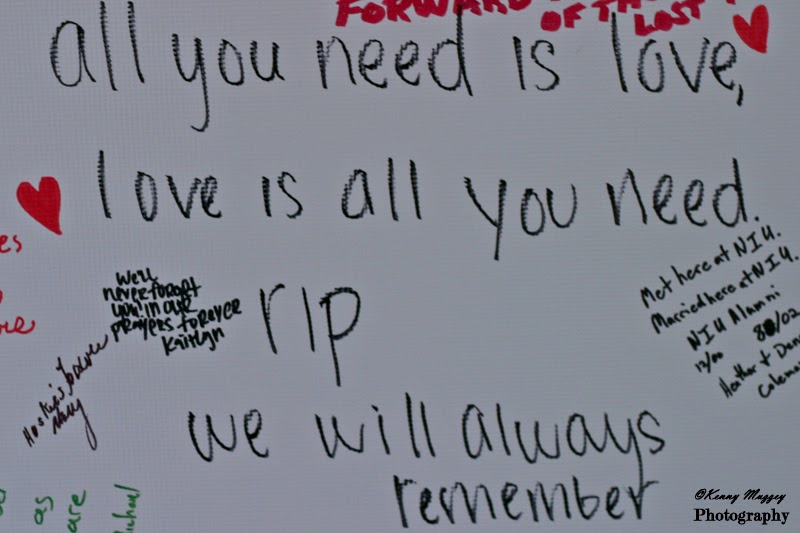 FORWARD
OF THE
LOST
all you need is love,
love is all you need.
rip
we will always
remember
We'll
never forget
you in our
prayers forever
Kaitlyn
Huskies forever
Met here at NIU.
Married here at NIU.
NIU Alumni
12/00 /02
Heather +
as
are
©Kenny Muggey
Photography